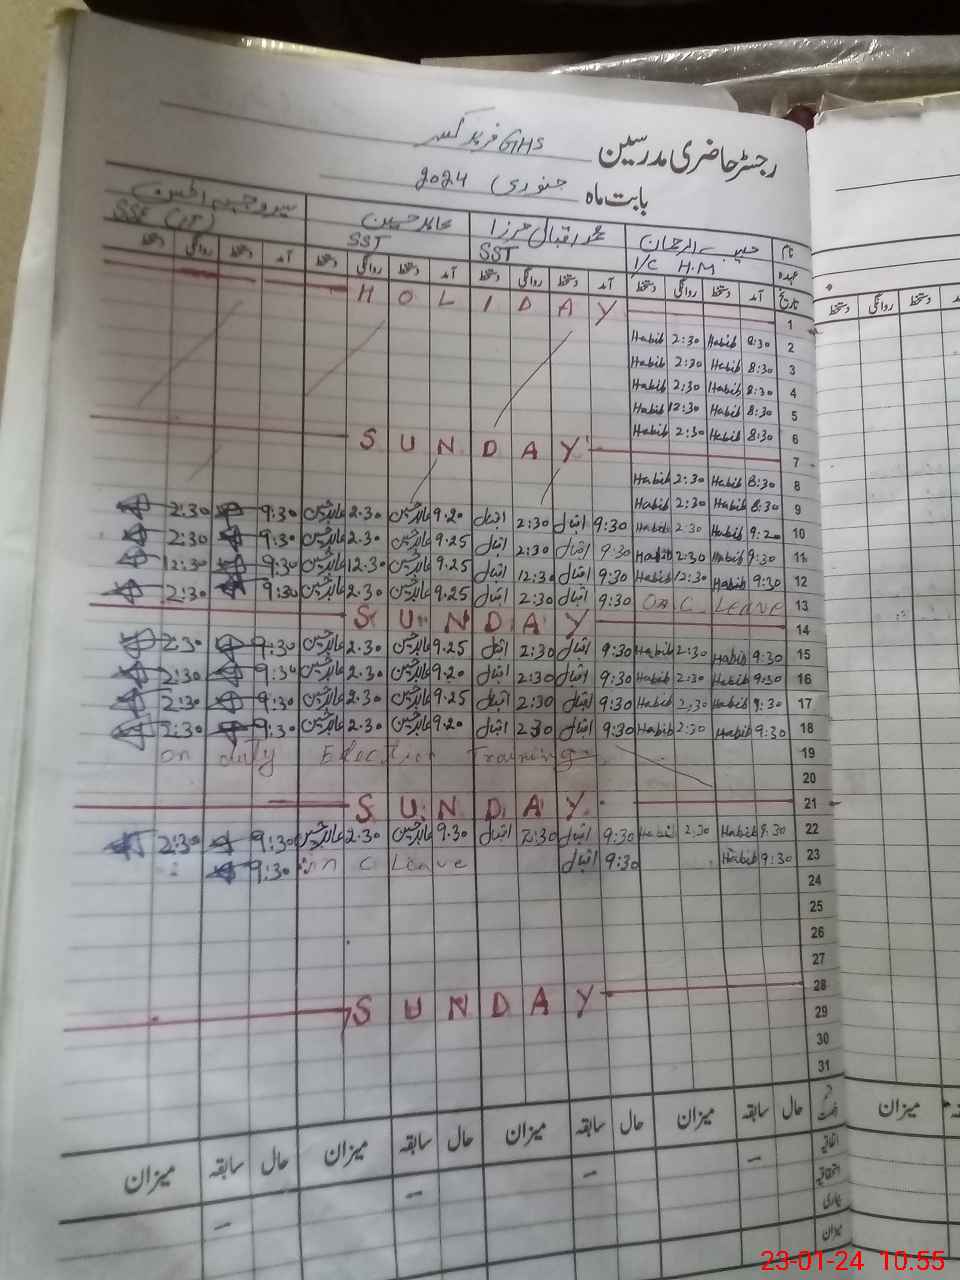 رجسٹر حاضری مدرسین GHS فرید
بابت ماہ جنوری 2024
نام حبیب الرحمان محمد اقبال مرزا عابد حسین
عہدہ I/C H.M SST SST SSE
تاریخ آمد دستخط روانگی دستخط آمد دستخط روانگی دستخط آمد دستخط روانگی دستخط آمد دستخط روانگی دستخط
1 HOLIDAY
2 8:30 Habib 2:30 Habib
3 8:30 Habib 2:30 Habib
4 8:30 Habib 2:30 Habib
5 8:30 Habib 12:30 Habib
6 8:30 Habib 2:30 Habib
7 SUNDAY
8 8:30 Habib 2:30 Habib
9 8:30 Habib 2:30 Habib
10 9:20 Habib 2:30 Habib 9:30 اقبال 2:30 اقبال 9.20 عابد حسین 2.30 عابد حسین 9:30 2:30
11 9:30 Habib 2:30 Habib 9:30 اقبال 2:30 اقبال 9.25 عابد حسین 2.30 عابد حسین 9:30 2:30
12 9:30 Habib 12:30 Habib 9:30 اقبال 12:30 اقبال 9.25 عابد حسین 12.30 عابد حسین 9:30 12:30
13 On C. LEAVE 9:30 اقبال 2:30 اقبال 9.25 عابد حسین 2.30 عابد حسین 9:30 2:30
14 SUNDAY
15 9:30 Habib 2:30 Habib 9:30 اقبال 2:30 اقبال 9.25 عابد حسین 2.30 عابد حسین 9:30 2:30
16 9:30 Habib 2:30 Habib 9:30 اقبال 2:30 اقبال 9.20 عابد حسین 2.30 عابد حسین 9:30 2:30
17 9:30 Habib 2:30 Habib 9:30 اقبال 2:30 اقبال 9.25 عابد حسین 2.30 عابد حسین 9:30 2:30
18 9:30 Habib 2:30 Habib 9:30 اقبال 2:30 اقبال 9.20 عابد حسین 2.30 عابد حسین 9:30 2:30
19 on duty Election Training
20
21 SUNDAY
22 9:30 Habib 2:30 Habib 9:30 اقبال 2:30 اقبال 9.30 عابد حسین 2.30 عابد حسین 9:30 2:30
23 9:30 Habib 9:30 اقبال on C Leave 9:30
24
25
26
27
28 SUNDAY
29
30
31
حال سابقہ میزان حال سابقہ میزان حال سابقہ میزان حال سابقہ میزان
اتفاقیہ
بیماری
میزان
دستخط روانگی دستخط
میزان
23-01-24 10.55